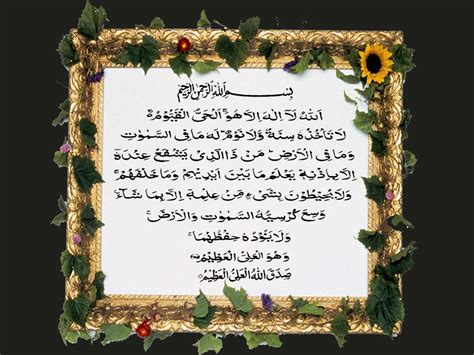 بِسْمِ اللهِ الرَّحْمٰنِ الرَّحِيْمِ
اَللهُ لَآ اِلٰهَ اِلَّا هُوَ ۚ اَلْحَىُّ الْقَيُّوْمُ ۚ
لَا تَاْخُذُهٗ سِنَةٌ وَّلَا نَوْمٌ ؕ لَهٗ مَا فِى السَّمٰوٰتِ
وَمَا فِى الْاَرْضِ ؕ مَنْ ذَا الَّذِىْ يَشْفَعُ عِنْدَهٗ
اِلَّا بِاِذْنِهٖ ؕ يَعْلَمُ مَا بَيْنَ اَيْدِيْهِمْ وَمَا خَلْفَهُمْ ۚ
وَلَا يُحِيْطُوْنَ بِشَىْءٍ مِّنْ عِلْمِهٖٓ اِلَّا بِمَا شَآءَ ۚ
وَسِعَ كُرْسِيُّهُ السَّمٰوٰتِ وَالْاَرْضَ ۚ
وَلَا يَـُٔوْدُهٗ حِفْظُهُمَا ۚ
وَهُوَ الْعَلِىُّ الْعَظِيْمُ
صَدَقَ اللهُ الْعَلِىُّ الْعَظِيْمُ